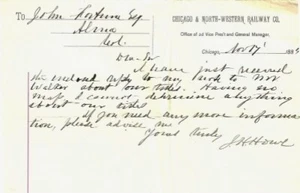 To John
Alma
CHICAGO & NORTH-WESTERN RAILWAY CO.
Office of 2d Vice Prest and General Manager,
Chicago, Nov 17 188
Dear Sir
I have just received
the enclosed reply to my letter to Mr
about our titles. Having no
map I cannot determine anything
about our titles
If you need any more informa
tion, please advise me
Yours truly